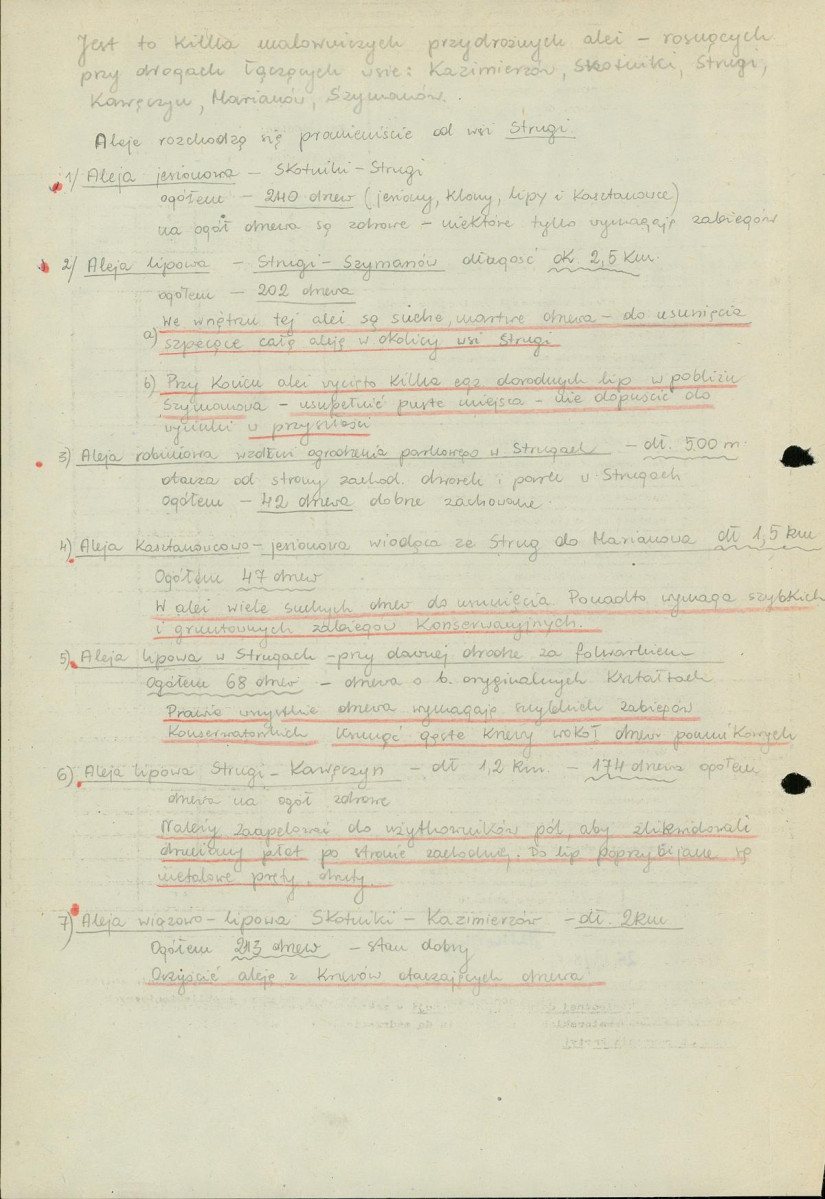 Jest to kilka malowniczych przydrożnych alei – rosnących
przy drogach łączących wsie: Kazimierzów, Skotniki, Strugi,
Kawęczyn, Marianów, Szymanów.
Aleje rozchodzą się promieniście od wsi Strugi
1/ Aleja jesionowa – Skotniki – Strugi
ogółem – 240 drzew (jesiony, klony, lipy i kasztanowce)
na ogół drzewa są zdrowe – niektóre tylko wymagają zabiegów
2/ Aleja lipowa – Strugi – Szymanów długość ok 2,5 km.
ogółem – 202 drzewa
We wnętrzu tej alei są suche, martwe drzewa – do usunięcia
a) szpecące całą aleję w okolicy wsi Strugi
b) Przy końcu alei wycięto kilka egz dorodnych lip w pobliżu
Szymanowa – uzupełnić puste miejsca – nie dopuścić do
wycinki w przyszłości
3) Aleja robiniowa wzdłuż ogrodzenia parkowego w Strugach – dł. 500 m.
otacza od strony zachod. dworek i park w Strugach
Ogółem – 42 drzewa dobrze zachowane.
4) Aleja kasztanowcowo – jesionowa wiodąca ze Strug do Marianowa dł 1,5 km
Ogółem 47 drzew
W alei wiele suchych drzew do usunięcia. Ponadto wymaga szybkich
i gruntownych zabiegów konserwacyjnych.
5) Aleja lipowa w Strugach – przy dawnej drodze za folwarkiem
Ogółem 68 drzew – drzewa o b. oryginalnych kształtach
Prawie wszystkie drzewa wymagają szybkich zabiegów
konserwatorskich Usunąć gęste krzewy wokół drzew pomnikowych
6) Aleja lipowa Strugi – Kawęczyn – dł 1,2 km. – 174 drzewa ogółem
drzewa na ogół zdrowe
Należy zaapelować do użytkowników pól, aby zlikwidowali
druciany płot po stronie zachodniej. Do lip poprzybijane są
metalowe pręty, druty.
7) Aleja wiązowo – lipowa Skotniki – Kazimierzów – dł. 2 km
Ogółem 213 drzew – stan dobry
Oczyścić aleję z krzewów otaczających drzewa